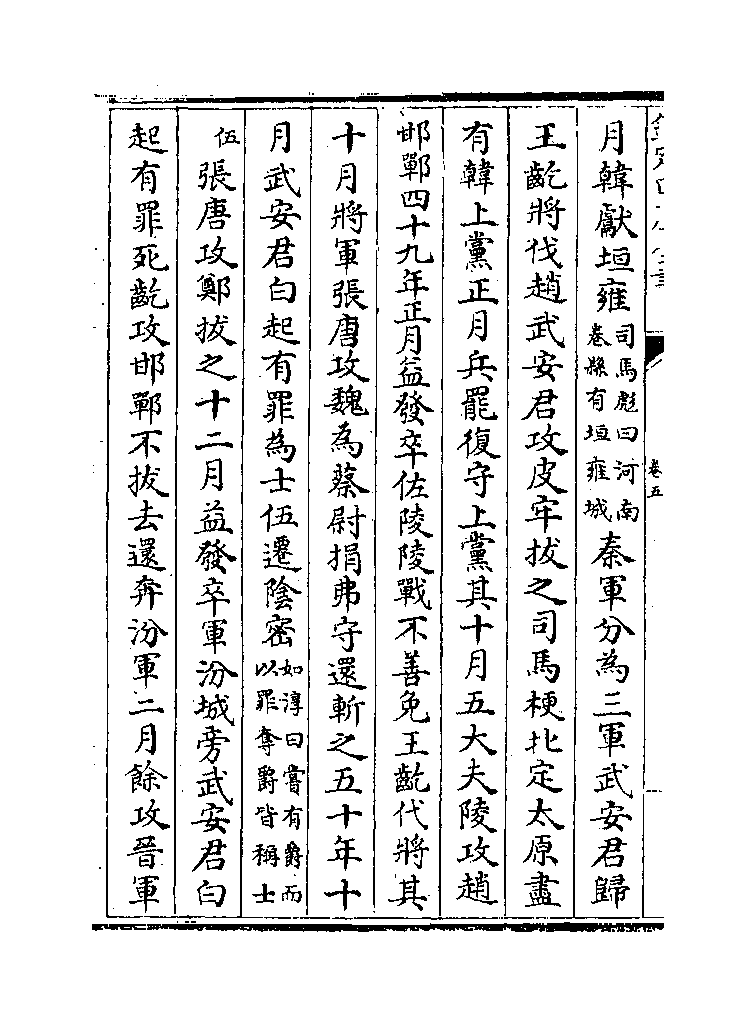 月韓獻垣雍司馬彪曰河南卷縣有垣雍城秦軍分為三軍武安君歸
王齕將伐趙武安君攻皮牢拔之司馬梗北定太原盡
有韓上黨正月兵罷復守上黨其十月五大夫陵攻趙
邯鄲四十九年正月益發卒佐陵陵戰不善免王齕代將其
十月將軍張唐攻魏為蔡尉捐弗守還斬之五十年十
月武安君白起有罪為士伍遷陰密如淳曰嘗有爵而以罪奪爵皆稱士
伍張唐攻鄭拔之十二月益發卒軍汾城旁武安君白
起有罪死齕攻邯鄲不拔去還奔汾軍二月餘攻晉軍
卷五